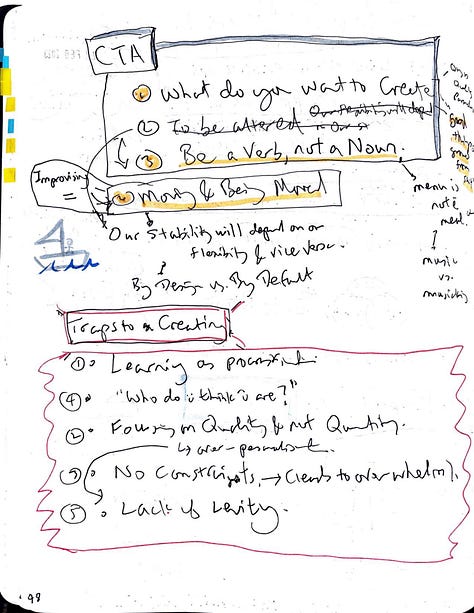 CTA
① What do you want to Create
② To be altered
③ Be a Verb, not a Noun.
Improvising
=
Moving & Being Moved
Our Stability will depend on our
flexibility & vice versa.
By Design vs. By Default
menu is
not a
meal.
music
vs.
musicking
Traps to Creating
① Learning as procrastinat.
④ "Who do i think i are?"
② Focus on Quality & not Quantity.
↳ over-personalizat.
③ No Constraints → (leads to overwhelm).
⑤ Lack of Levity.
98